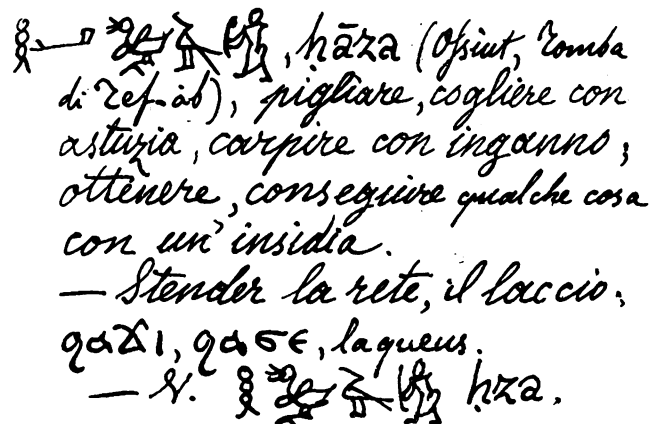 , ḥāza (Ossiut, Tomba
di Tef-àb), pigliare, cogliere con
astuzia, carpire con inganno;
ottenere, conseguire qualche cosa
con un' insidia.
— Stender la rete, il laccio;
ϩⲁϫⲓ, ϩⲁϭⲉ, laqueus.
— V. ḥza.